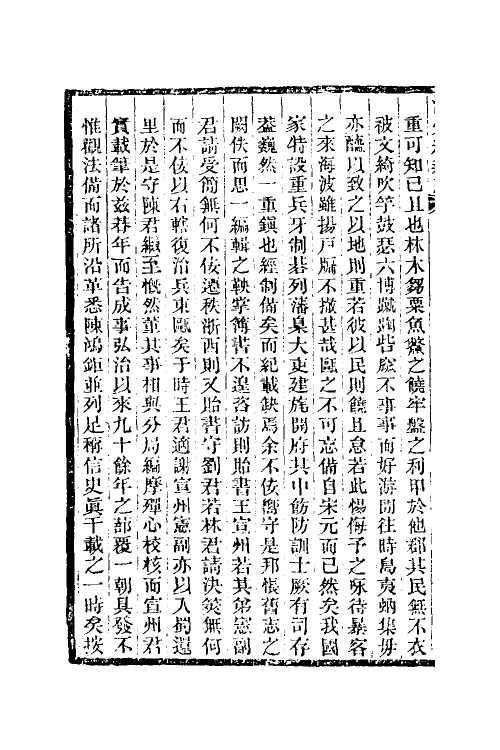 重可知已且也林木錫粟魚鱉之饒牢盤之利甲於他郡其民無不衣
被文綺吹竽鼓瑟六博蹴踘皆窳不事事而好游閒往時島夷蜹集毋
亦醯以致之以地則重若彼以民則饒且怠若此慢侮予之咏待暴客
之來海波雖揚戶牖不撤甚哉甌之不可忘備自宋元而已然矣我國
家特設重兵牙制碁列藩臬大吏建旄開府其中飭防訓士厥有司存
葢巍然一重鎭也經制備矣而紀載缺焉余不佞嚮守是邦悵舊志之
闕佚而思一編輯之鞅掌簿書不遑咨訪則貽書王宣州若其弟憲副
君請受簡無何不佞遷秩浙西則又貽書守劉君若林君請決筴無何
而不佞以右轄復治兵東甌矣于時王君適謝宣州憲副亦以入蜀還
里於是守陳君繼至慨然董其事相與分局編摩殫心校核而宣州君
實載筆於玆朞年而告成事弘治以來九十餘年之蔀覆一朝具發不
惟觀法備而諸所沿革悉陳鴻鉅並列足稱信史眞千載之一時矣按